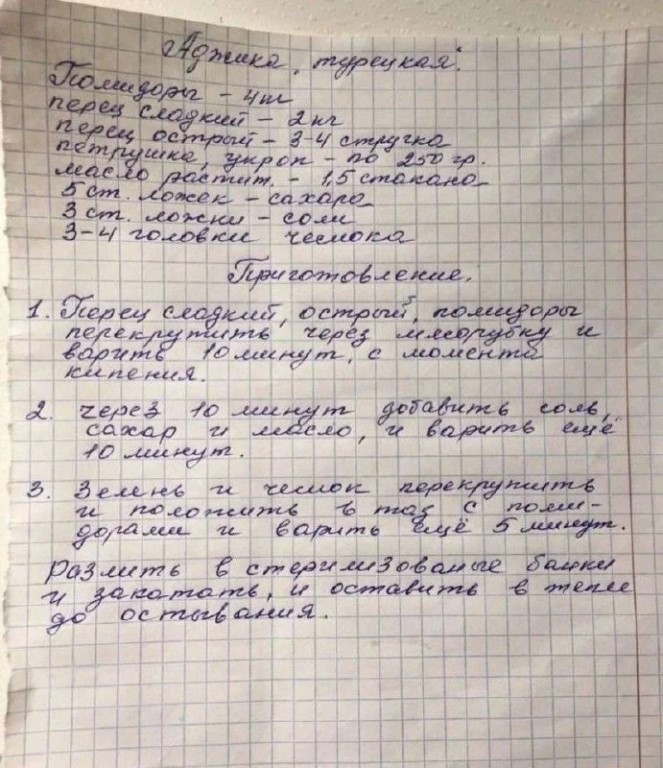 Аджика, турецкая.
Помидоры - 4 кг
перец сладкий - 2 кг
перец острый - 3-4 стручка
петрушка, укроп - по 250 гр.
масло растит. - 1,5 стакана
5 ст. ложек - сахара
3 ст. ложки - соли
3-4 головки чеснока
Приготовление.
1. Перец сладкий, острый, помидоры
перекрутить через мясорубку и
варить 10 минут, с момента
кипения.
2. через 10 минут добавить соль,
сахар и масло, и варить ещё
10 минут.
3. Зелень и чеснок перекрутить
и положить в таз с поми-
дорами и варить ещё 5 минут.
Разлить в стерилизованые банки
и закатать, и оставить в тепле
до остывания.